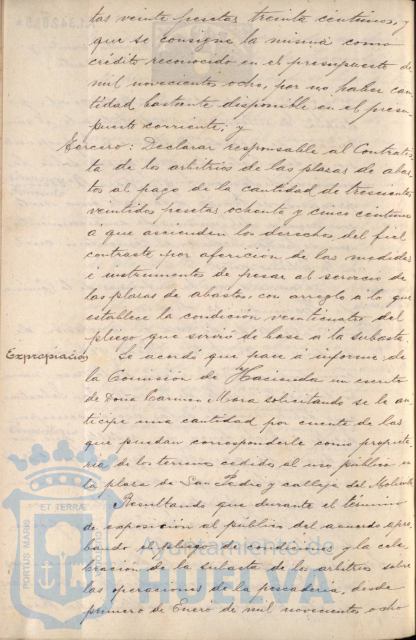 tas veinte pesetas treinta céntimos, y
que se consigne la misma como
crédito reconocido en el presupuesto de
mil novecientos ocho, por no haber can
tidad bastante disponible en el presu
puesto corriente; y
Tercero: Declarar responsable al Contratis
ta de los arbitrios de las plazas de abas
tos al pago de la cantidad de trescientas
veintidos pesetas ochenta y cinco céntimos
á que ascienden los derechos del fiel
contraste por aferición de las medidas
é instrumentos de pesar al servicio de
las plazas de abastos, con arreglo á lo que
establece la condición veinticuatro del
pliego que sirvió de base a la subasta.
Expropiación
Se acordó que pase á informe de
la Comisión de Hacienda un escrito
de Doña Carmen Mora solicitando se le an
ticipe una cantidad por cuenta de las
que puedan corresponderle como propieta
ria de los terrenos cedidos al uso público en
la plaza de San Pedro y calleja del Molino
Resultando que durante el término
de exposición al público del acuerdo apro
bando el pliego de condiciones y la cele
bración de la subasta de los arbitrios sobre
las operaciones de la pescadería, desde
primero de Enero de mil novecientos ocho
PORTUS MARIS ET TERRÆ CUSTODIA
Ayuntamiento de
HUELVA